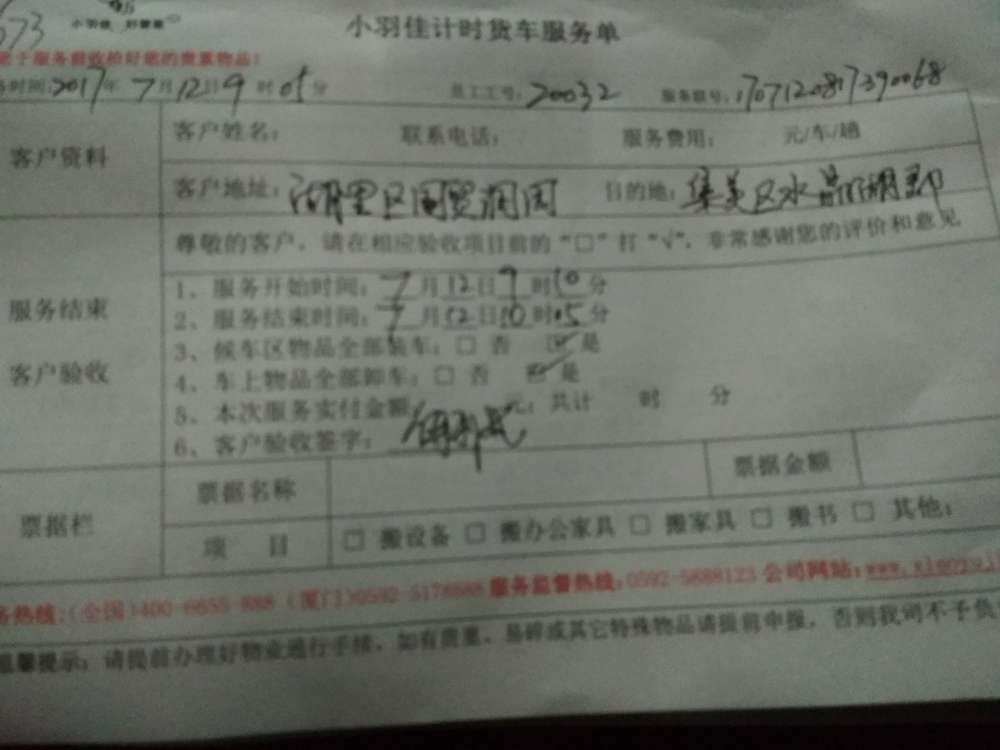 673 小羽佳 好管家 小羽佳计时货车服务单
于服务前收拾好您的贵重物品!
务时间:2017年7月12日9时05分 员工工号:20032 服务联号:1707120817390068
客户资料
客户姓名: 联系电话: 服务费用: 元/车/趟
客户地址:湖里区国贸润园 目的地:集美区水晶湖郡
尊敬的客户,请在相应验收项目前的“□”打“√”,非常感谢您的评价和意见
服务结束
客户验收
1、服务开始时间:7月12日9时10分
2、服务结束时间:7月12日10时05分
3、候车区物品全部装车:□ 否 ☑ 是
4、车上物品全部卸车:□ 否 ☑ 是
5、本次服务实付金额 元;共计 时 分
6、客户验收签字:
票据栏
票据名称 票据金额
项 目 □ 搬设备 □ 搬办公家具 □ 搬家具 □ 搬书 □ 其他:
务热线:(全国)400-6655-888 (厦门)0592-5178888 服务监督热线:0592-5888123 公司网站:
温馨提示:请提前办理好物业通行手续,如有贵重、易碎或其它特殊物品请提前申报,否则我司不予负